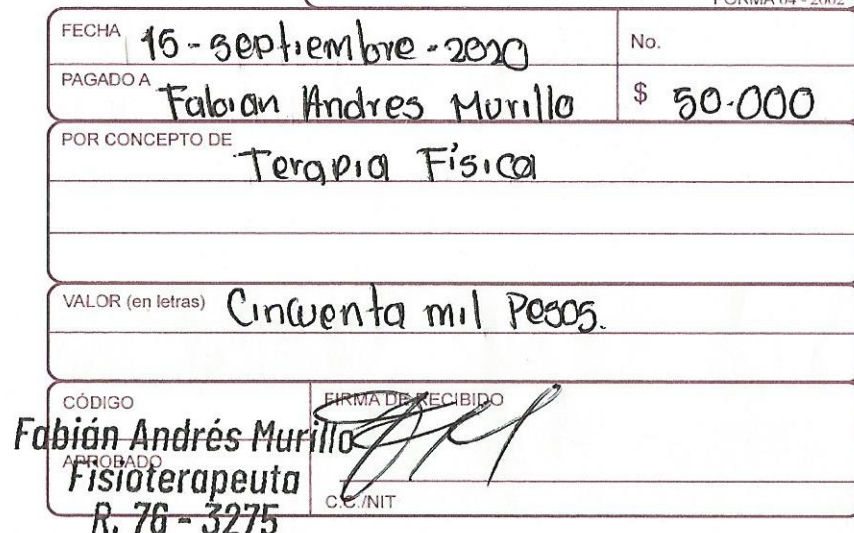 FORMA 04 - 2002
FECHA 15 - septiembre - 2020 No.
PAGADO A Fabian Andres Murillo $ 50.000
POR CONCEPTO DE Terapia Física
VALOR (en letras) Cincuenta mil Pesos.
CÓDIGO FIRMA DE RECIBIDO
Fabián Andrés Murillo
APROBADO
Fisioterapeuta
C.C./NIT
R. 76 - 3275